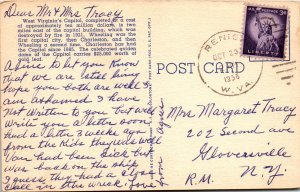 Dear Mr + Mrs Tracy
West Virginia's Capitol, completed at a cost
of approximately ten million dollars, is two
miles east of the capitol building, which was
destroyed by fire in 1921. Wheeling was the
first capitol city, then Charleston, and then
Wheeling a second time. Charleston has had
the Capitol since 1885. The guilded dome
over the Capitol carries $25,000 worth of
gold leaf.
A line to let you know
that we are still living
hope you both are well
am ashamed I have
Not Written to you but will
write you a letter soon
had a letter 3 weeks ago
from the Kids they said
Van had been sick but
was back on the
I guess they had a
in the wreck, love from
POST CARD
OCT 23
1958
W. VA.
3¢
Mrs Margaret Tracy
202 Second ave
Gloversville
R.M. N.Y.